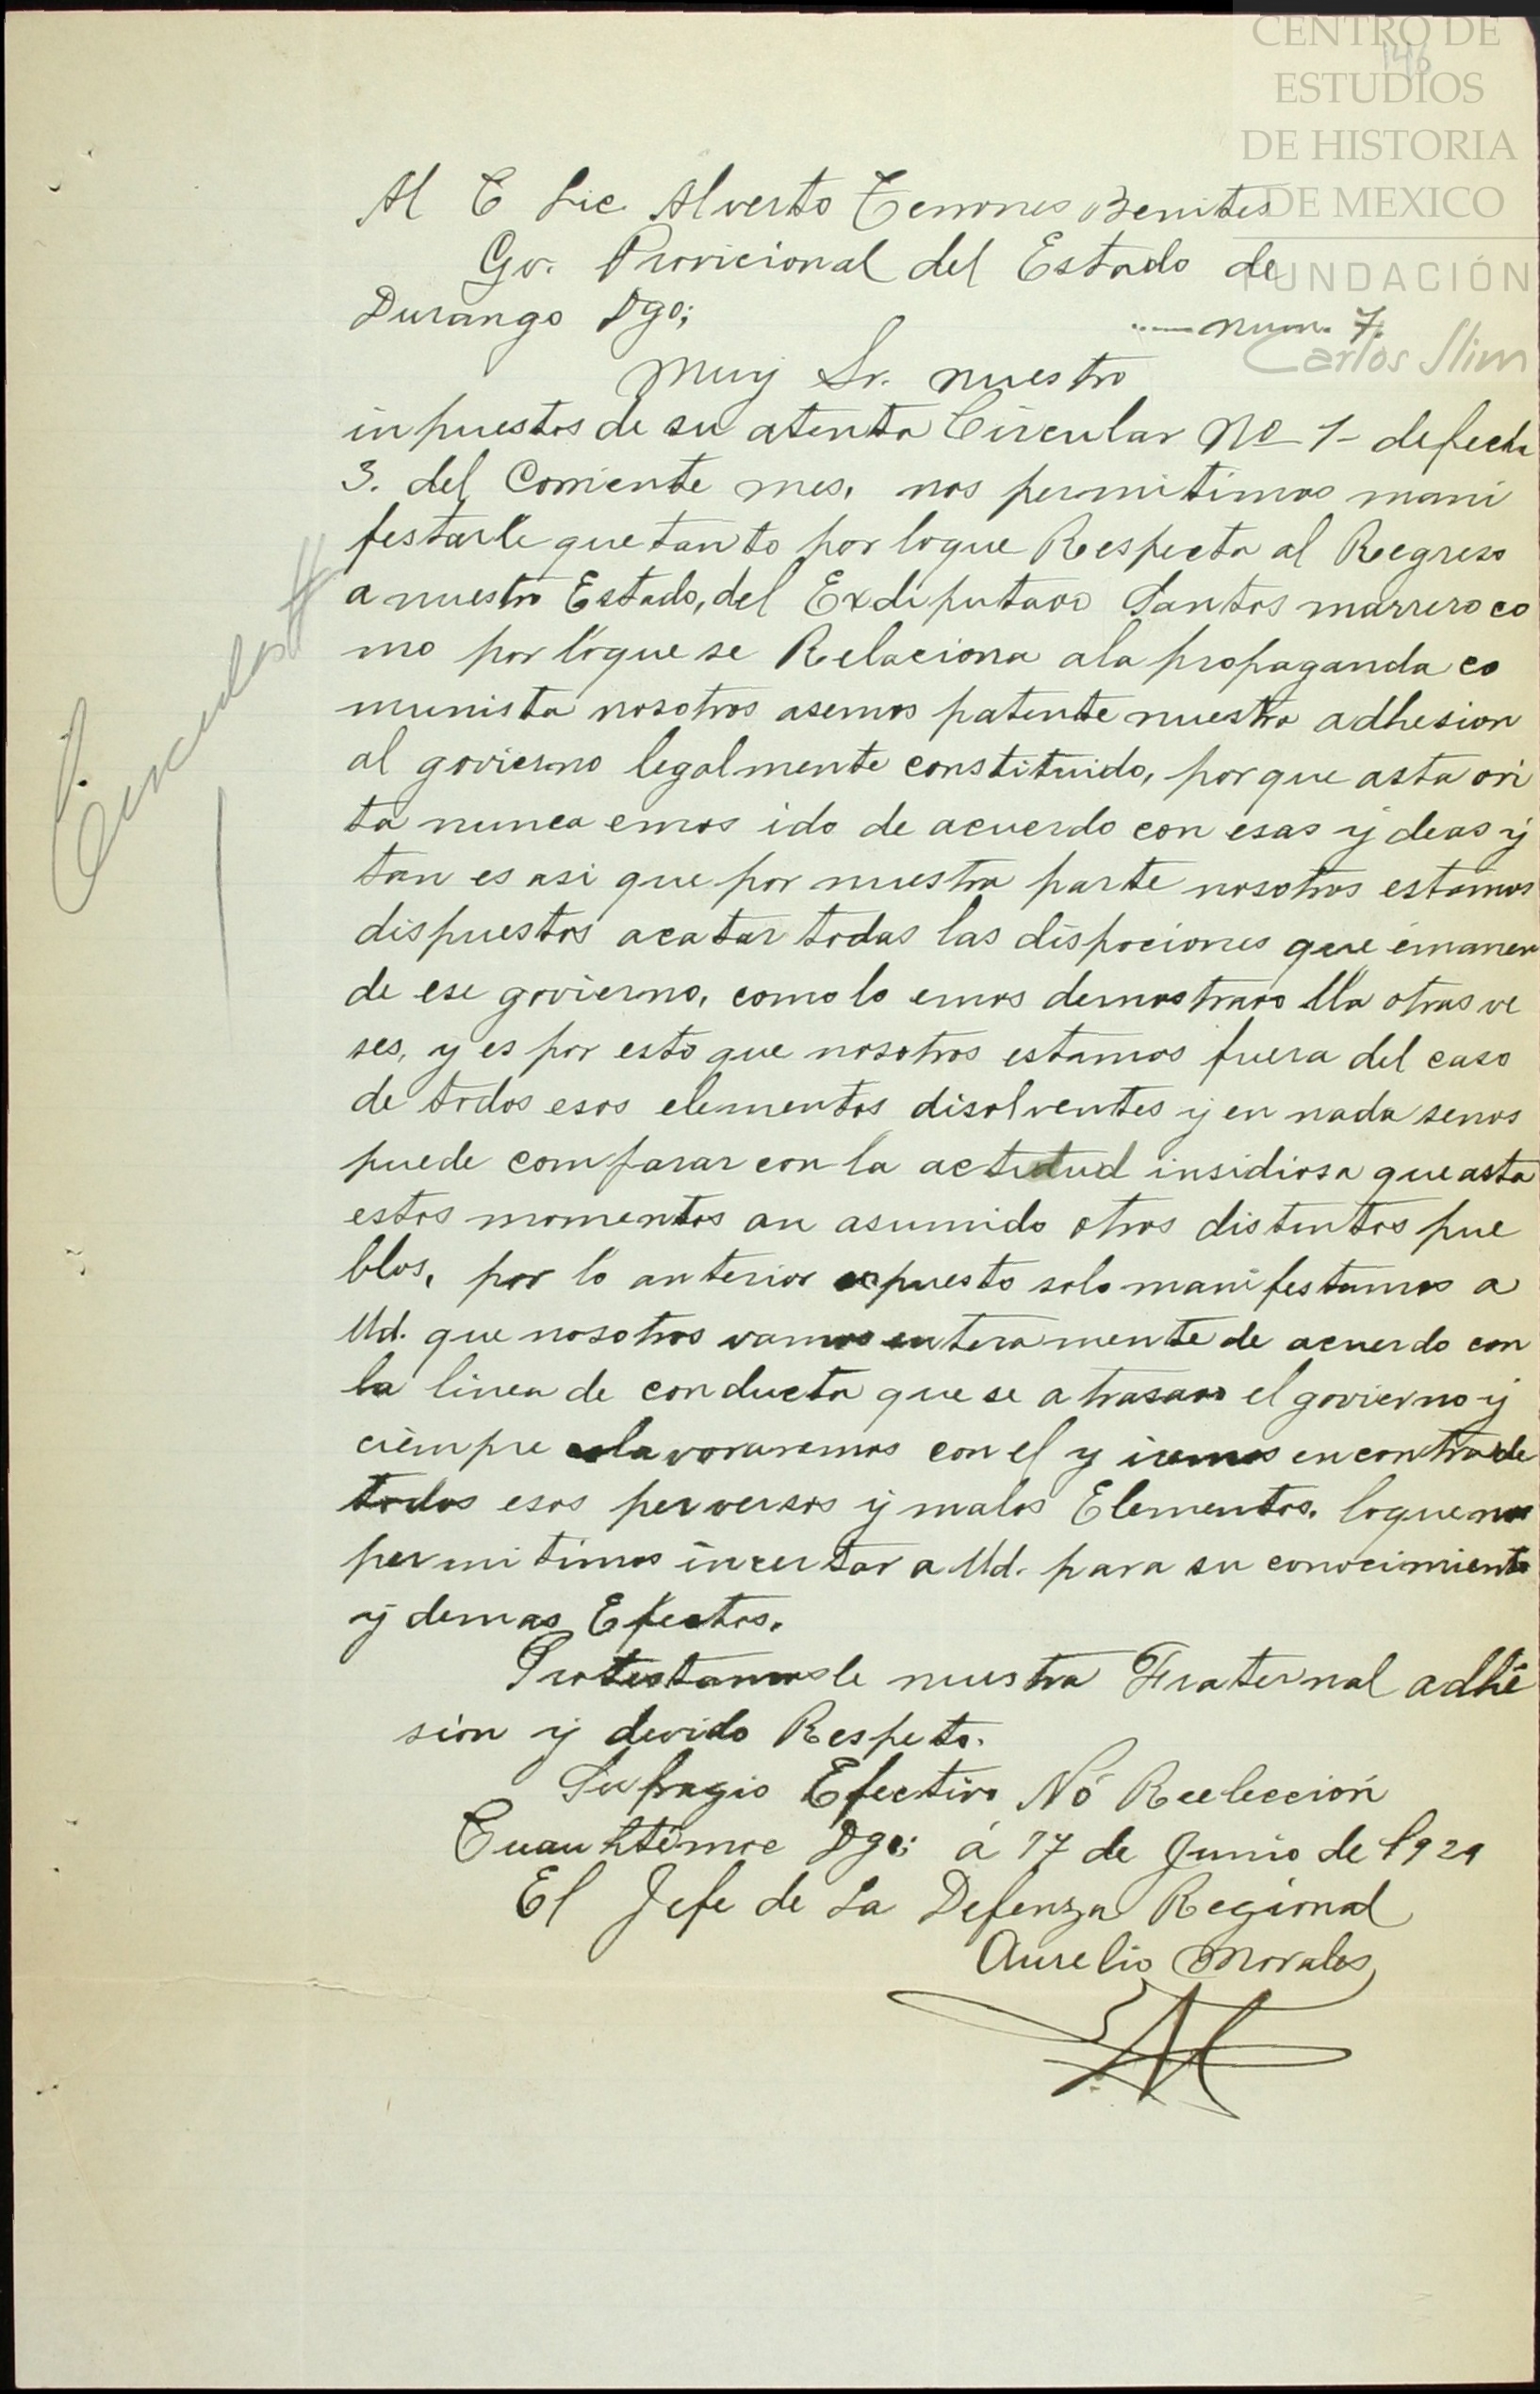 CENTRO DE
ESTUDIOS
DE HISTORIA
DE MEXICO
FUNDACIÓN
Carlos Slim
146
Al C Lic Alverto Terrones Benites
Gv. Provicional del Estado de
Durango Dgo;
num. 7.
Muy Sr. nuestro
inpuestos de su atenta Circular No 1- de fecha
3. del Corriente mes, nos permitimos mani
festarle que tanto por loque Respecta al Reegreso
a nuestro Estado, del Exdiputavo Santos marrero co
mo por loque se Relaciona ala propaganda co
munista nosotros asemos patente nuestra adhesion
al govierno legalmente constituido, por que asta ori
ta nunca emos ido de acuerdo con esas y deas y
tan es asi que por nuestra parte nosotros estamos
dispuestos acatar todas las dispociones que emanen
de ese govierno, como lo emos demostravo lla otras ve
ses, y es por esto que nosotros estamos fuera del caso
de todos esos elementos disolventes y en nada senos
puede comparar con la actitud insidiosa que asta
estos momentos an asumido otros distintos pue
blos, por lo anterior expuesto solo manifestamos a
Ud. que nosotros vamos enteramente de acuerdo con
la linea de conducta que se a trasavo el govierno y
ciempre colavoraremos con el y iremos encontra de
todos esos perversos y malos Elementos. loque nos
permitimos incertar a Ud. para su conocimiento
y demas Efectos.
Protestamosle nuestra Fraternal adhe
sion y devido Respeto.
Sufragio Efectivo Nó Reelección
Cuauhtémoc Dgo; á 17 de Junio de 1929
El Jefe de La Defenza Regional
Aurelio Morales
Circular